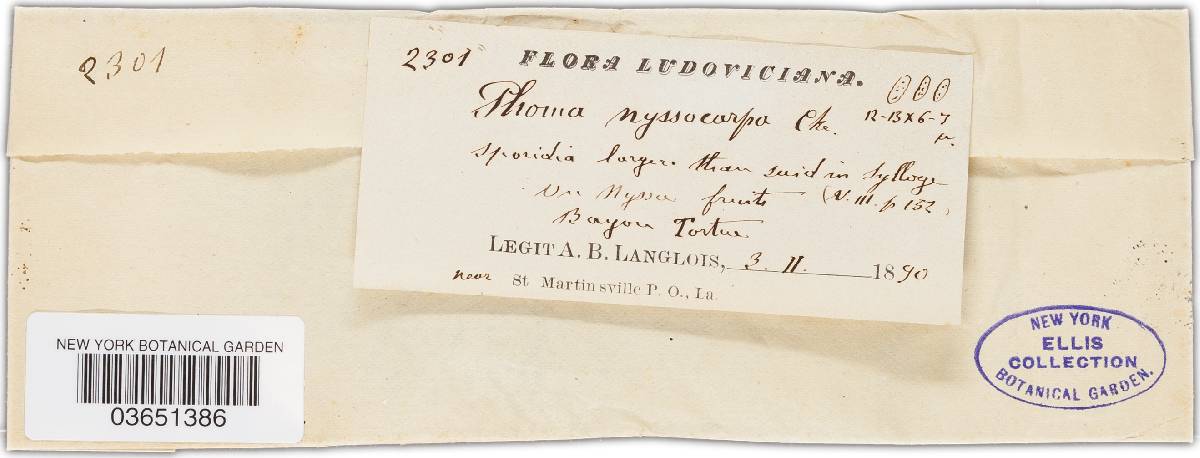 2301
2301
FLORA LUDOVICIANA.
Phoma nyssocarpa Cke. 12-13x6-7
µ.
Sporidia larger than said in Sylloge
on Nyssa fruits (V. III. p 152)
Bayou Tortue
LEGIT A. B. LANGLOIS, 3. II. 1890
near St Martinsville P. O., La.
NEW YORK BOTANICAL GARDEN
03651386
NEW YORK
ELLIS
COLLECTION
BOTANICAL GARDEN.